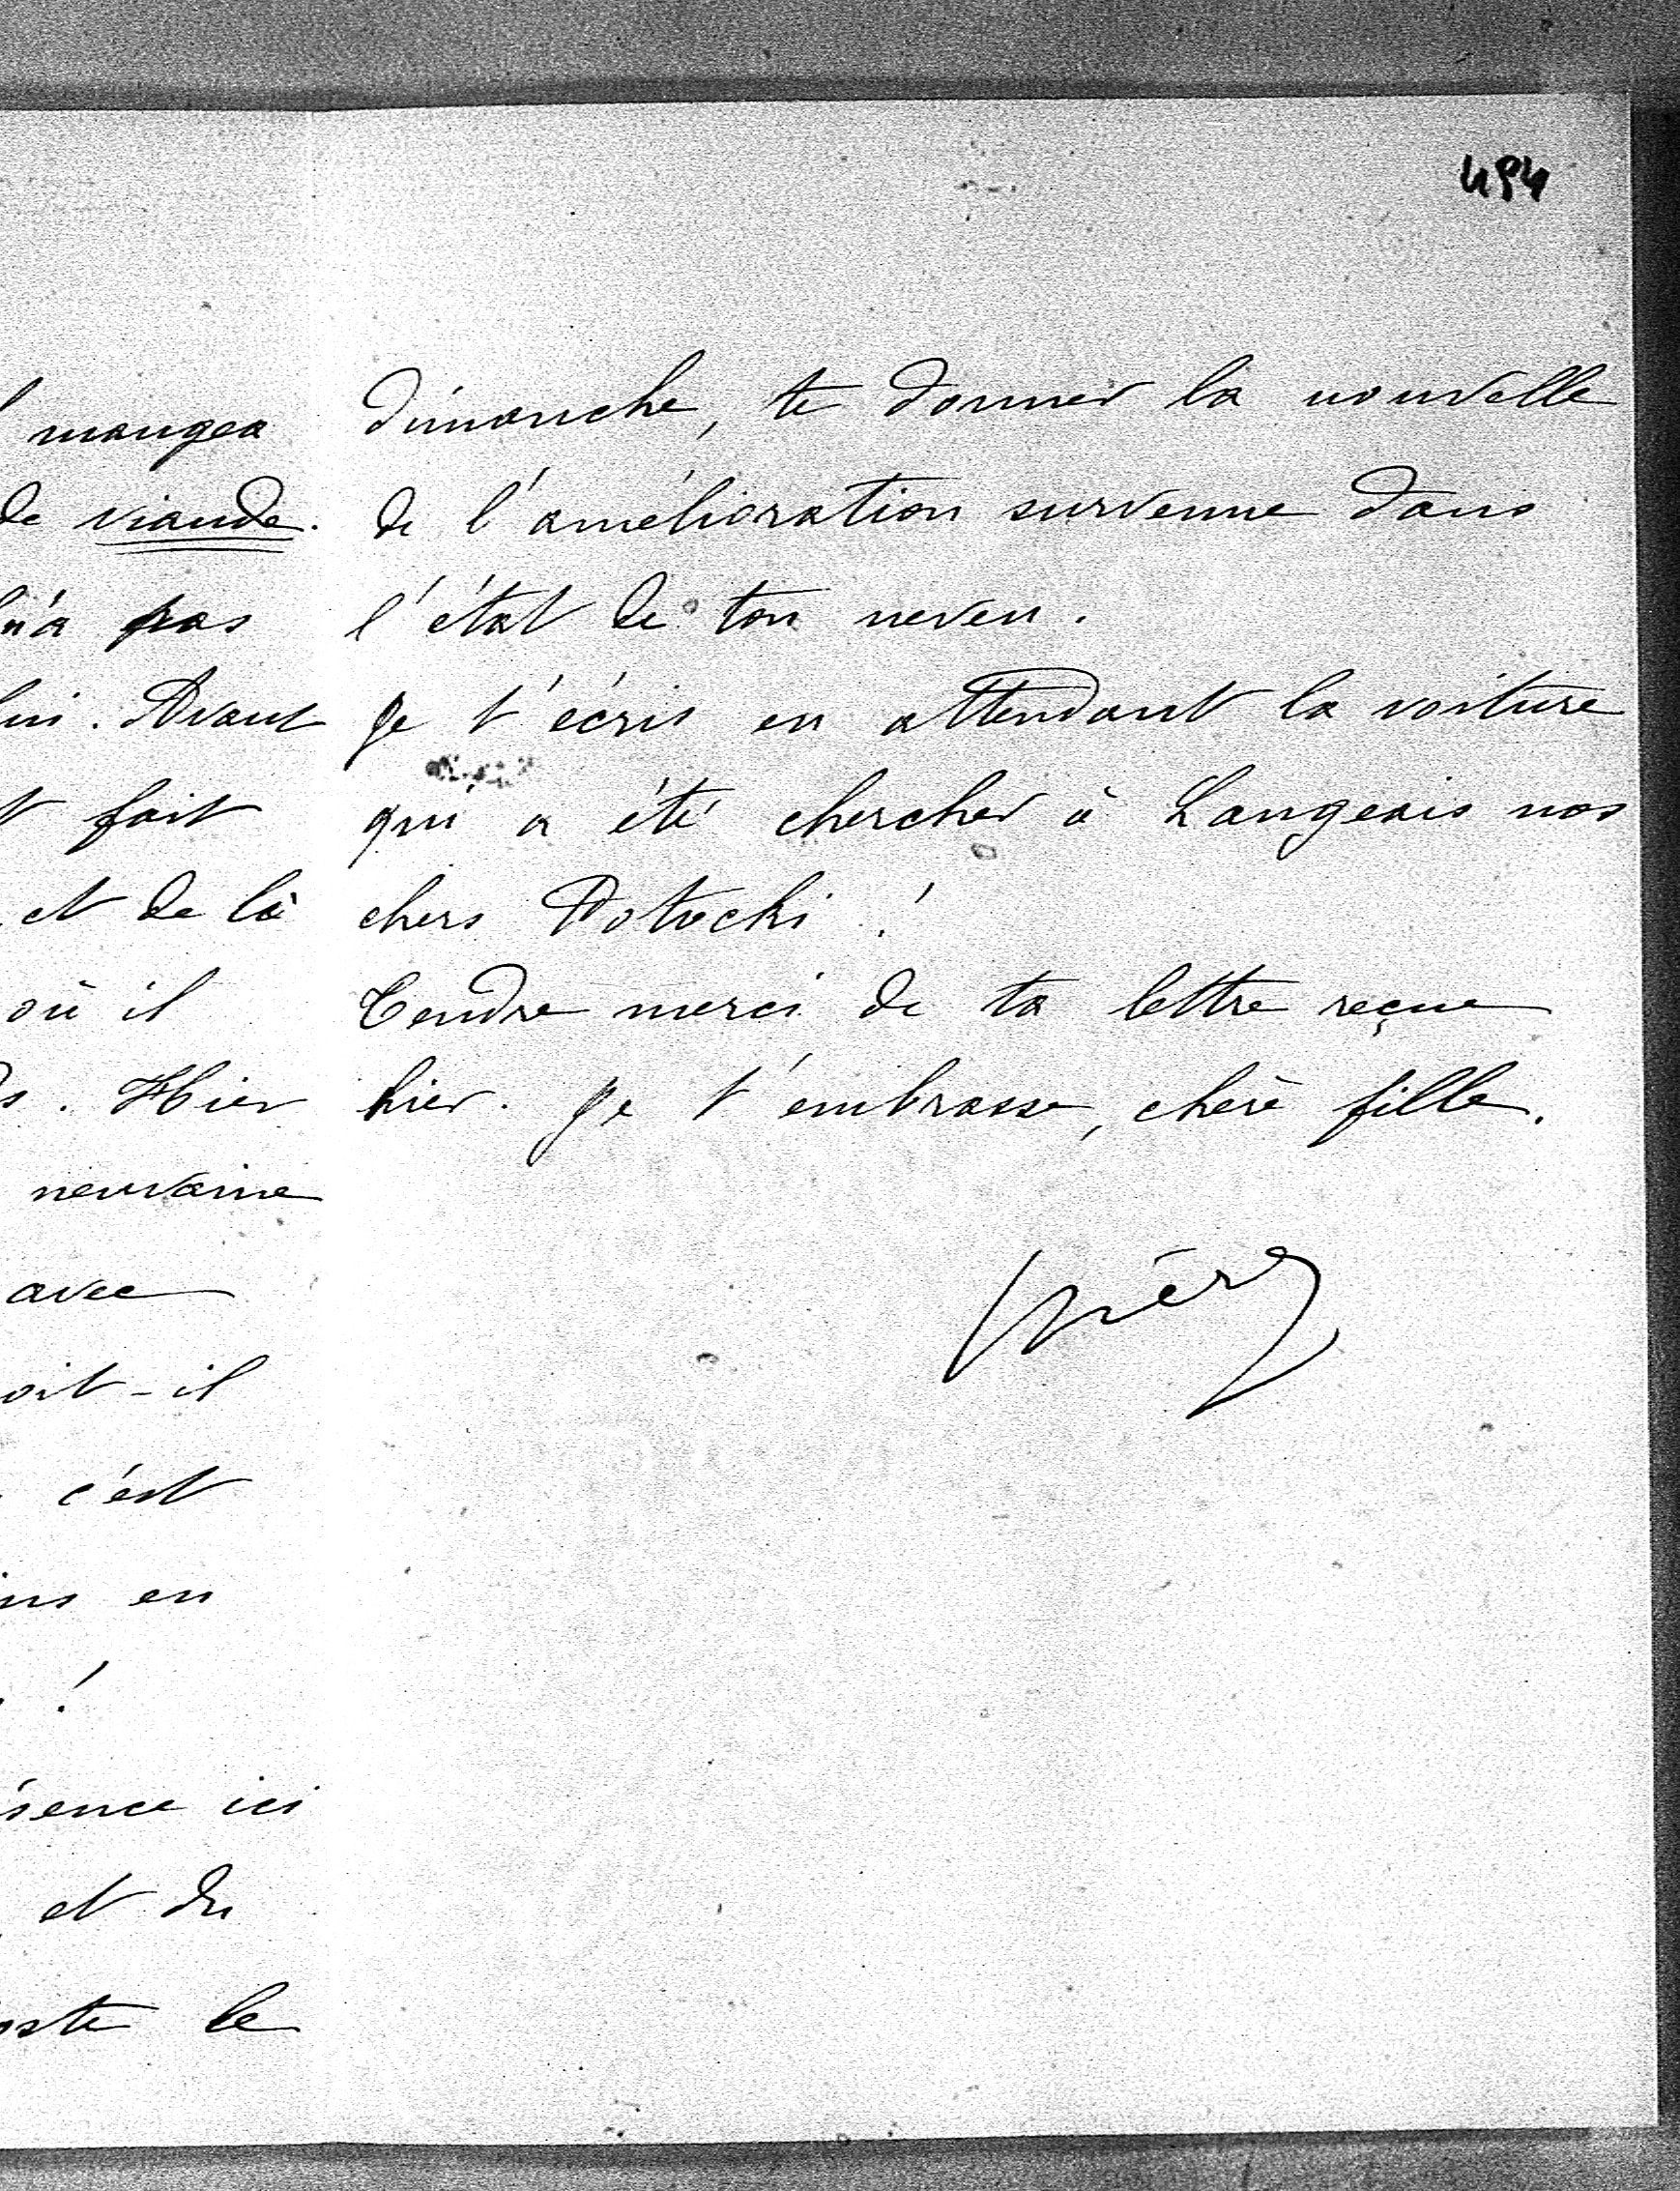 494
mangea
de viande.
n'a pas
lui. Avant
fait
et de là
où il
Hier
neuvaine
avec
oit-il
c'est
ins en
!
ésence ici
et du
oste le
dimanche, te donner la nouvelle
de l'amélioration survenue dans
l'état de ton neveu.
Je t'écris en attendant la voiture
qui a été chercher à Langeais nos
chers Potocki !
Tendre merci de ta lettre reçue
hier. Je t'embrasse, chère fille.
Mère